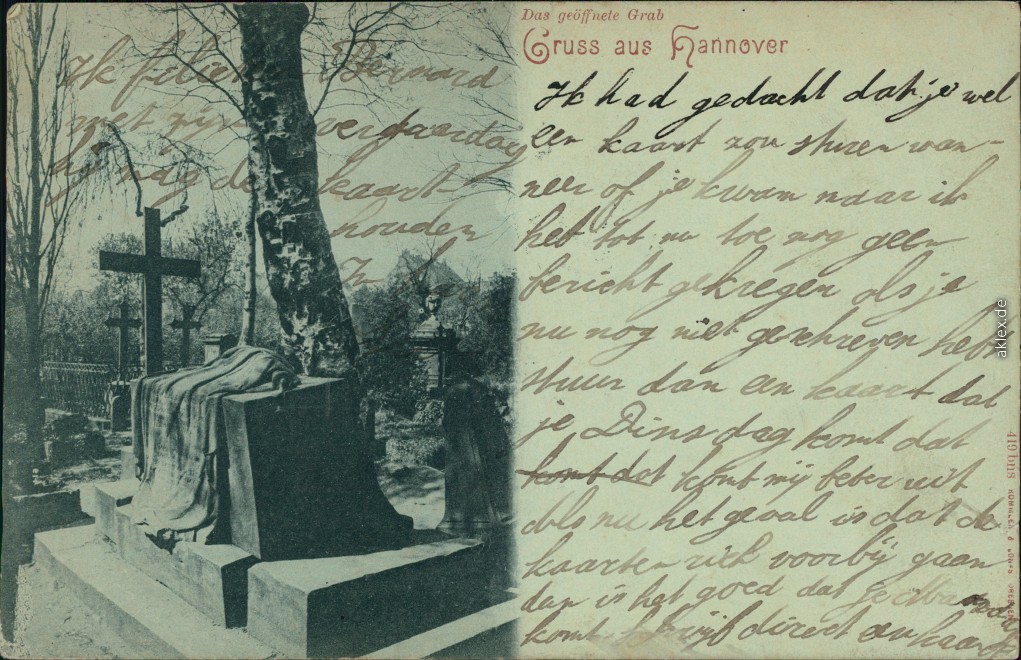 Das geöffnete Grab
Gruss aus Hannover
Ik had gedacht dat je wel
een kaart zou sturen wan-
neer of je kwam maar ik
heb tot nu toe nog geen
bericht gekregen als je
nu nog niet geschreven hebt
stuur dan een kaart dat
je Dinsdag komt dat
komt dat komt mij beter uit
als nu het geval is dat de
kaarten zich voorbij gaan
dan is het goed dat
komt schrijf direct een kaart
Ik Bernard
met zijn verjaardag
hij de kaart
houden
aklex.de